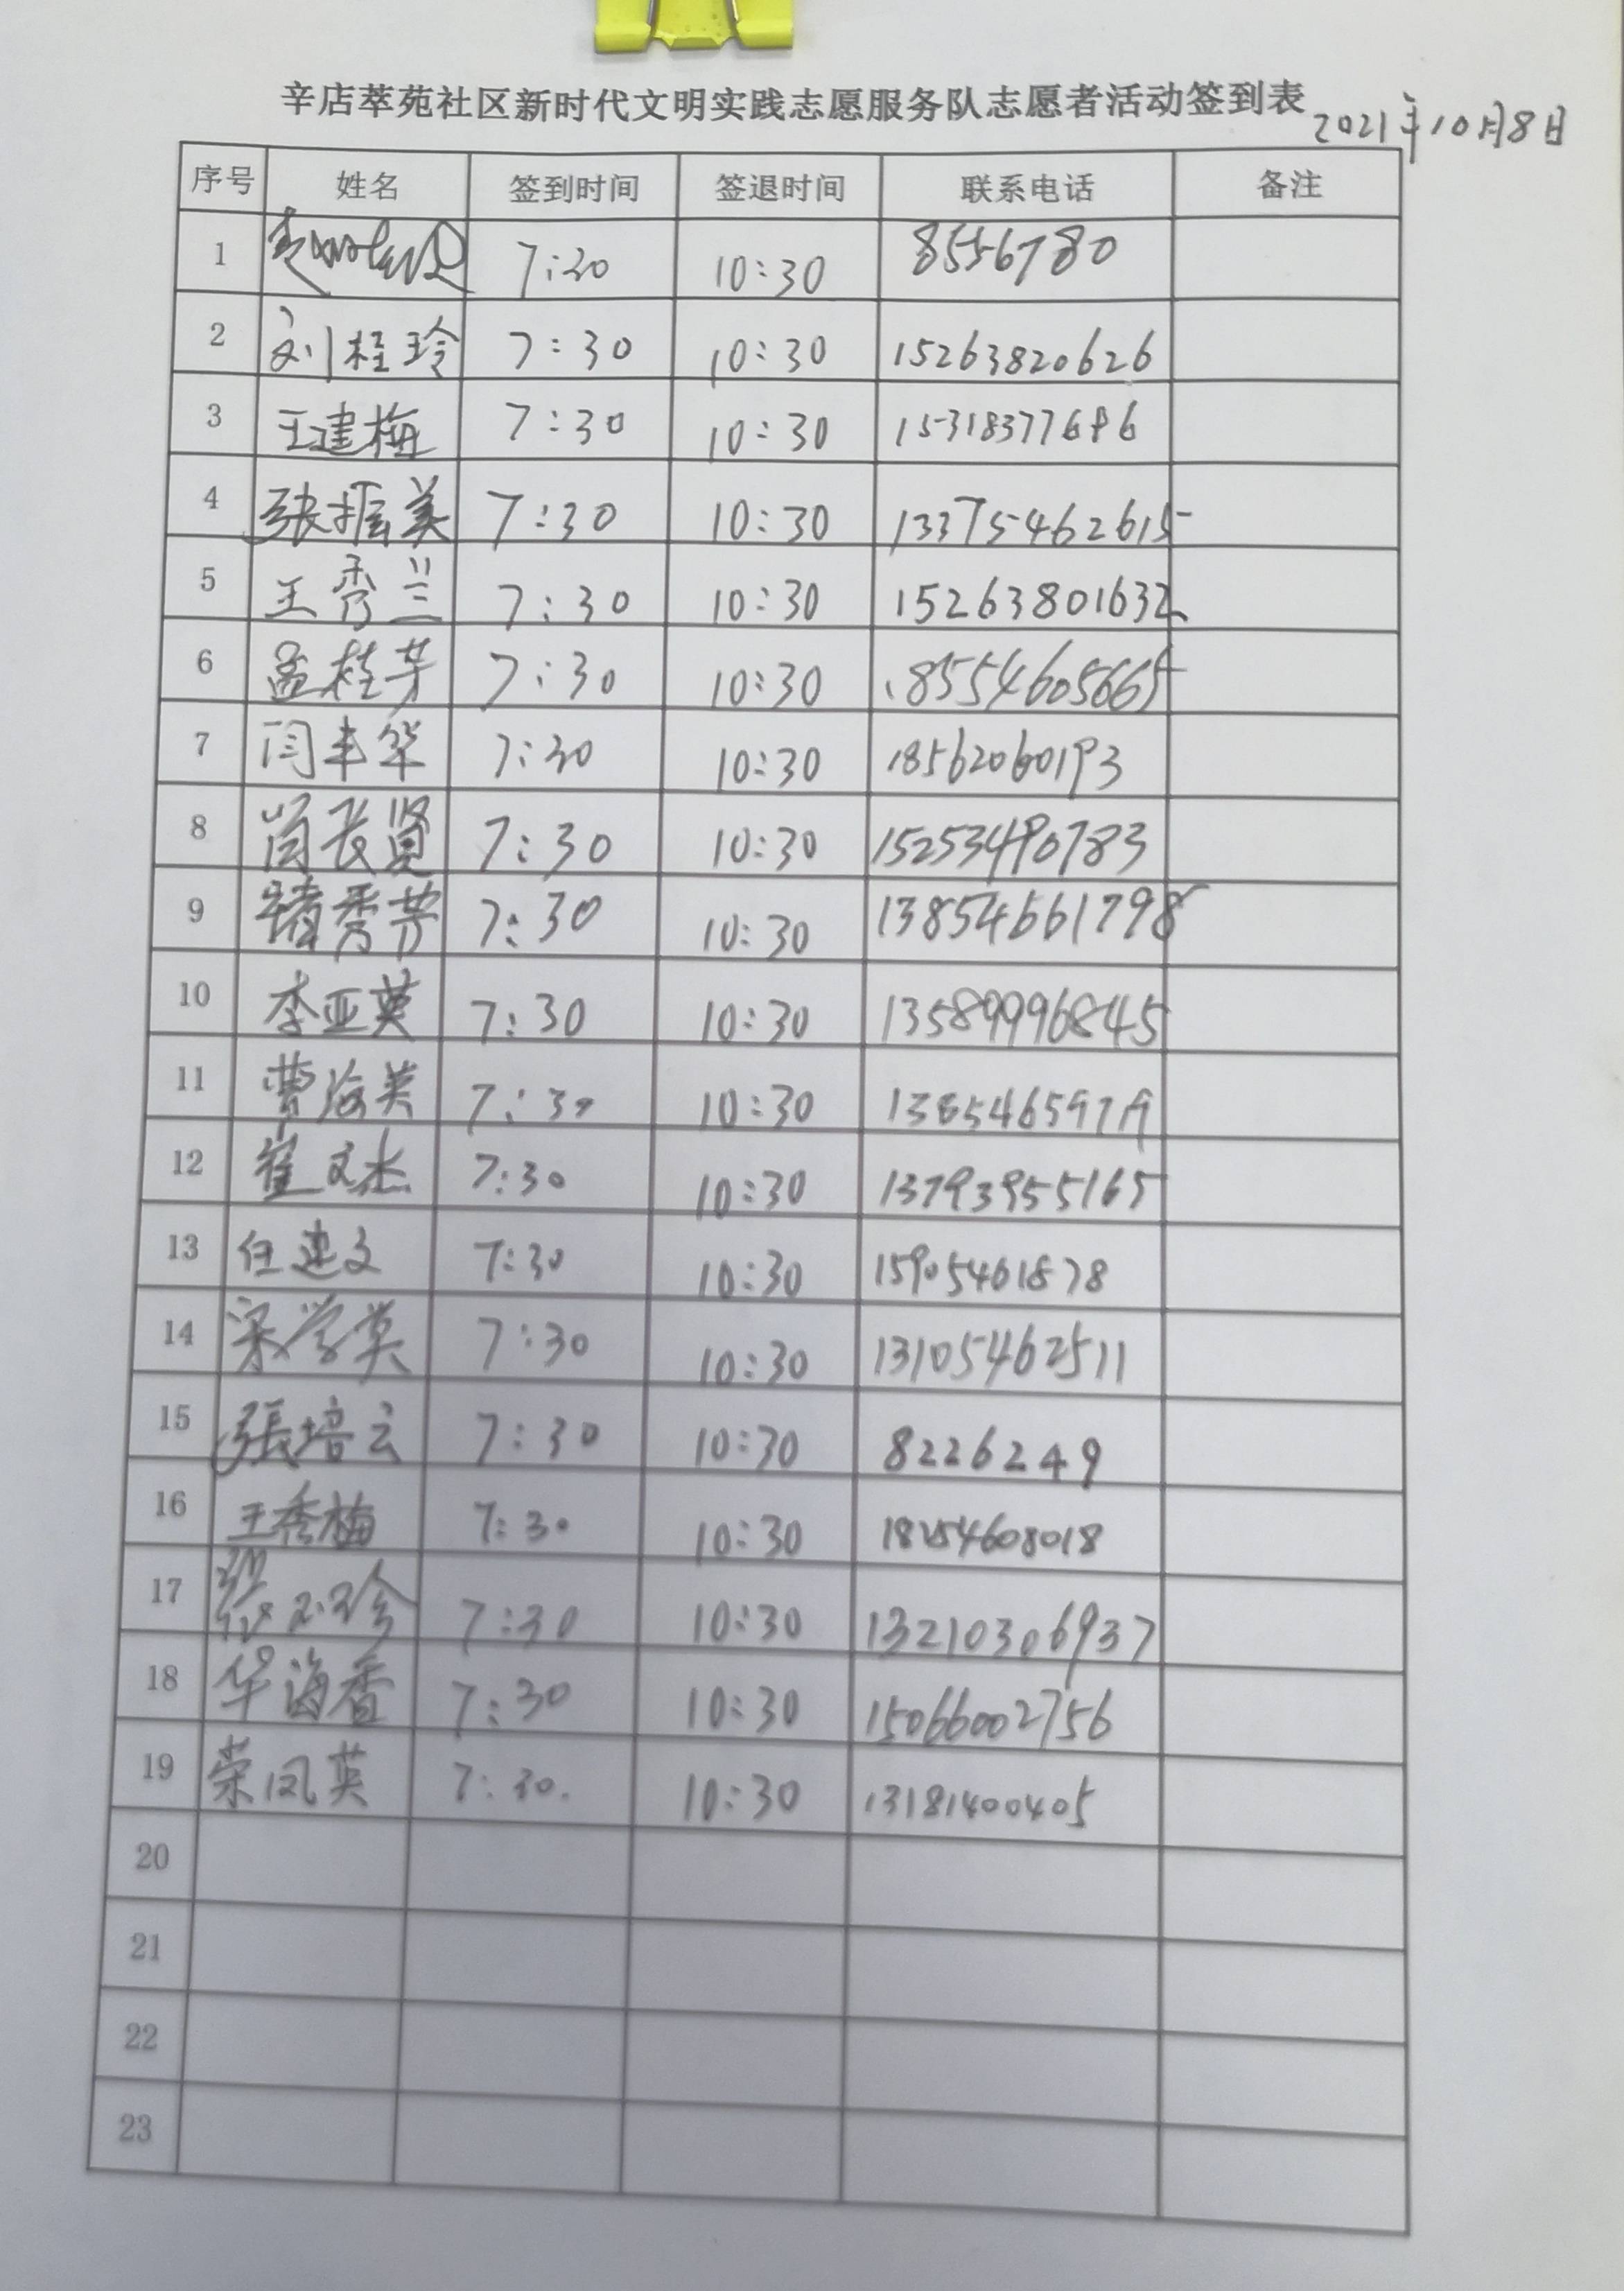 辛店萃苑社区新时代文明实践志愿服务队志愿者活动签到表
2021年10月8日
序号 姓名 签到时间 签退时间 联系电话 备注
1 7:30 10:30 8556780
2 刘桂玲 7:30 10:30 15263820626
3 王建梅 7:30 10:30 15318377686
4 张振美 7:30 10:30 13375462615
5 王秀兰 7:30 10:30 15263801632
6 孟桂芳 7:30 10:30 18554605665
7 闫丰华 7:30 10:30 18562060193
8 尚长贤 7:30 10:30 15253490783
9 秀芳 7:30 10:30 13854661798
10 李亚英 7:30 10:30 13589996845
11 曹海英 7:30 10:30
12 崔文杰 7:30 10:30 13793955165
13 任建文 7:30 10:30 15905461878
14 宋学英 7:30 10:30 13105462511
15 張培云 7:30 10:30 8226249
16 王秀梅 7:30 10:30 18254608018
17 7:30 10:30 13210306937
18 华海香 7:30 10:30 15066002756
19 荣凤英 7:30. 10:30 13181400405
20
21
22
23